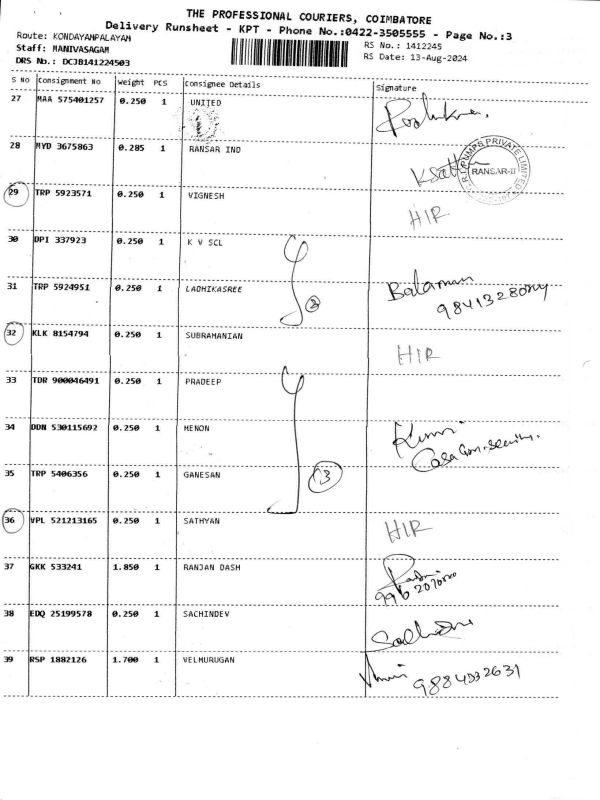 THE PROFESSIONAL COURIERS, COIMBATORE
Delivery Runsheet - KPT - Phone No.:0422-3505555 - Page No.:3
Route: KONDAYAMPALAYAM
RS No.: 1412245
Staff: MANIVASAGAM
RS Date: 13-Aug-2024
DRS No.: DCJB141224503
S No Consignment No Weight PCS Consignee Details Signature
27 MAA 575401257 0.250 1 UNITED
28 MYD 3675863 0.285 1 RANSAR IND
RANSAR-II
PRIVATE LIMITED
29 TRP 5923571 0.250 1 VIGNESH HIR
30 DPI 337923 0.250 1 K V SCL
31 TRP 5924951 0.250 1 LADHIKASREE Balaman
2
32 KLK 8154794 0.250 1 SUBRAMANIAN HIR
33 TDR 900046491 0.250 1 PRADEEP
34 DDN 530115692 0.250 1 MENON
35 TRP 5406356 0.250 1 GANESAN
3
36 VPL 521213165 0.250 1 SATHYAN HIR
37 GKK 533241 1.850 1 RANJAN DASH
38 EDQ 25199578 0.250 1 SACHINDEV
39 RSP 1882126 1.700 1 VELMURUGAN